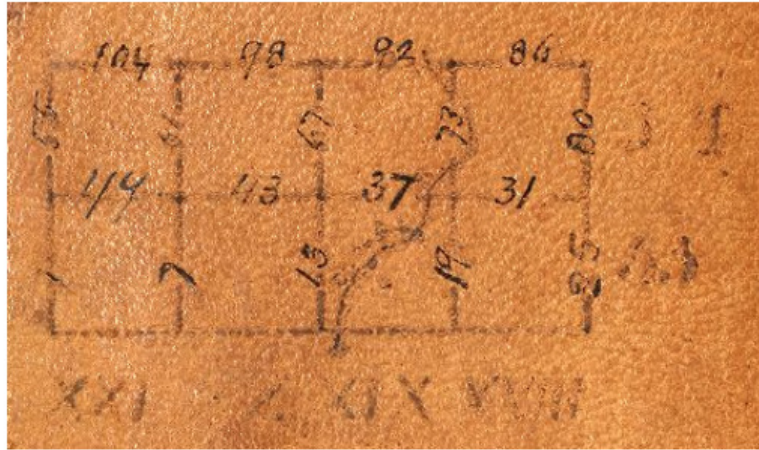 104 98 92 86
55 61 67 73 80
49 43 37 31
1 7 13 19 25
XXI XIX XVIII